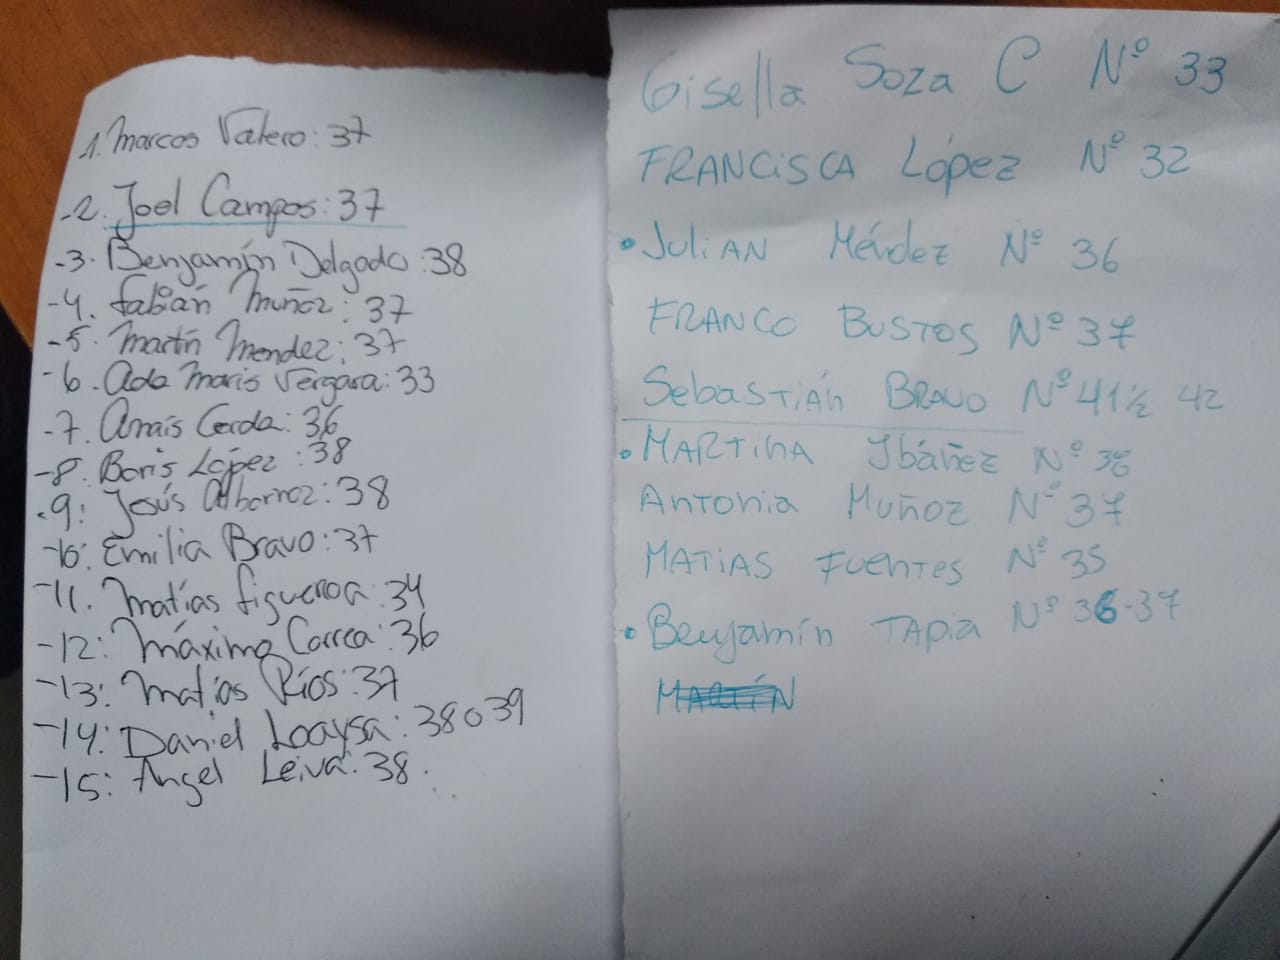 1. Marcos Valero: 37
-2. Joel Campos: 37
-3. Benjamín Delgado: 38
-4. Fabián Muñoz: 37
-5. Martín Mendez: 37
-6. Ada Maris Vergara: 33
-7. Anaís Cerda: 36
-8. Boris López: 38
-9: Jesús Albornoz: 38
-10: Emilia Bravo: 37
-11. Matías Figueroa: 34
-12: Máximo Correa: 36
-13: Matías Ríos: 37
-14: Daniel Loaysa: 38 o 39
-15: Ángel Leiva: 38.
Gisella Soza C Nº 33
FRANCISCA López Nº 32
• JuliAN Méndez Nº 36
FRANCO BUSTOS Nº 37
SebASTIÁN BRAVO Nº 41½ 42
• MARTINA Ibáñez Nº
Antonia Muñoz Nº 37
MATIAS FuenTES Nº 35
• Benjamín TApia Nº 36-37